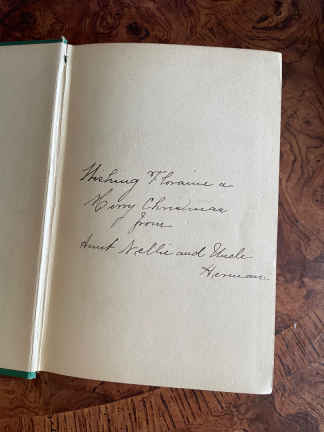 Wishing Floraine a
Merry Christmas
from
Aunt Nellie and Uncle
Herman